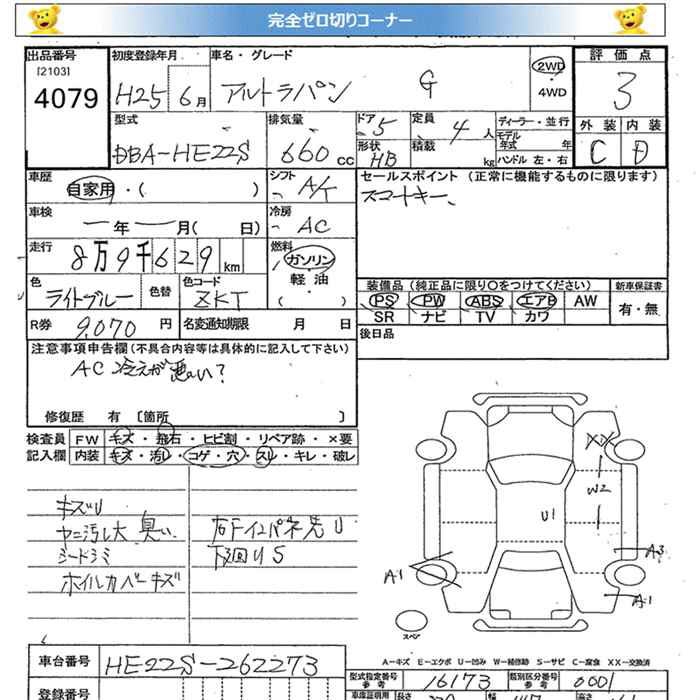 完全ゼロ切りコーナー
出品番号 初度登録年月 車名・グレード 評価点
[2103]
4079 H25 6月 アルトラパン G 2WD 4WD 3
型式 排気量 ドア 5 定員 4人 ディーラー・並行 外装 内装
DBA-HE22S 660cc 形状 HB 積載 kg モデル年式 年 C D
ハンドル 左・右
車歴 シフト セールスポイント(正常に機能するものに限ります)
自家用・( ) A/T スマートキー、
車検 冷房
ー年ー月( 日) AC
走行 燃料
8万9千629km ガソリン・軽油・( )
色 色替 色コード 装備品(純正品に限り○をつけてください) 新車保証書
ライトブルー ZKT PS PW ABS エアB AW 有・無
SR ナビ TV カワ
R券 9,070円 名変通知期限 月 日 後日品
注意事項申告欄(不具合内容等は具体的に記入して下さい)
AC 冷えが悪い?
修復歴 有 〔箇所 〕
検査員 FW キズ・飛石・ヒビ割・リペア跡・×要
記入欄 内装 キズ・汚レ・コゲ・穴・スレ・キレ・破レ
キズU
ヤニ汚レ大 臭い 右Fインパネ先U
シートシミ 下廻りS
ホイルカバーキズ
XX
W2
U1
A3
A1
A1
スペア
A-キズ E-エクボ U-凹み W-補修跡 S-サビ C-腐食 XX-交換済
車台番号 HE22S-262273
型式指定番号 参考 16173 類別区分番号 参考 0001
登録番号 車庫証明用 長さ 幅 高さ